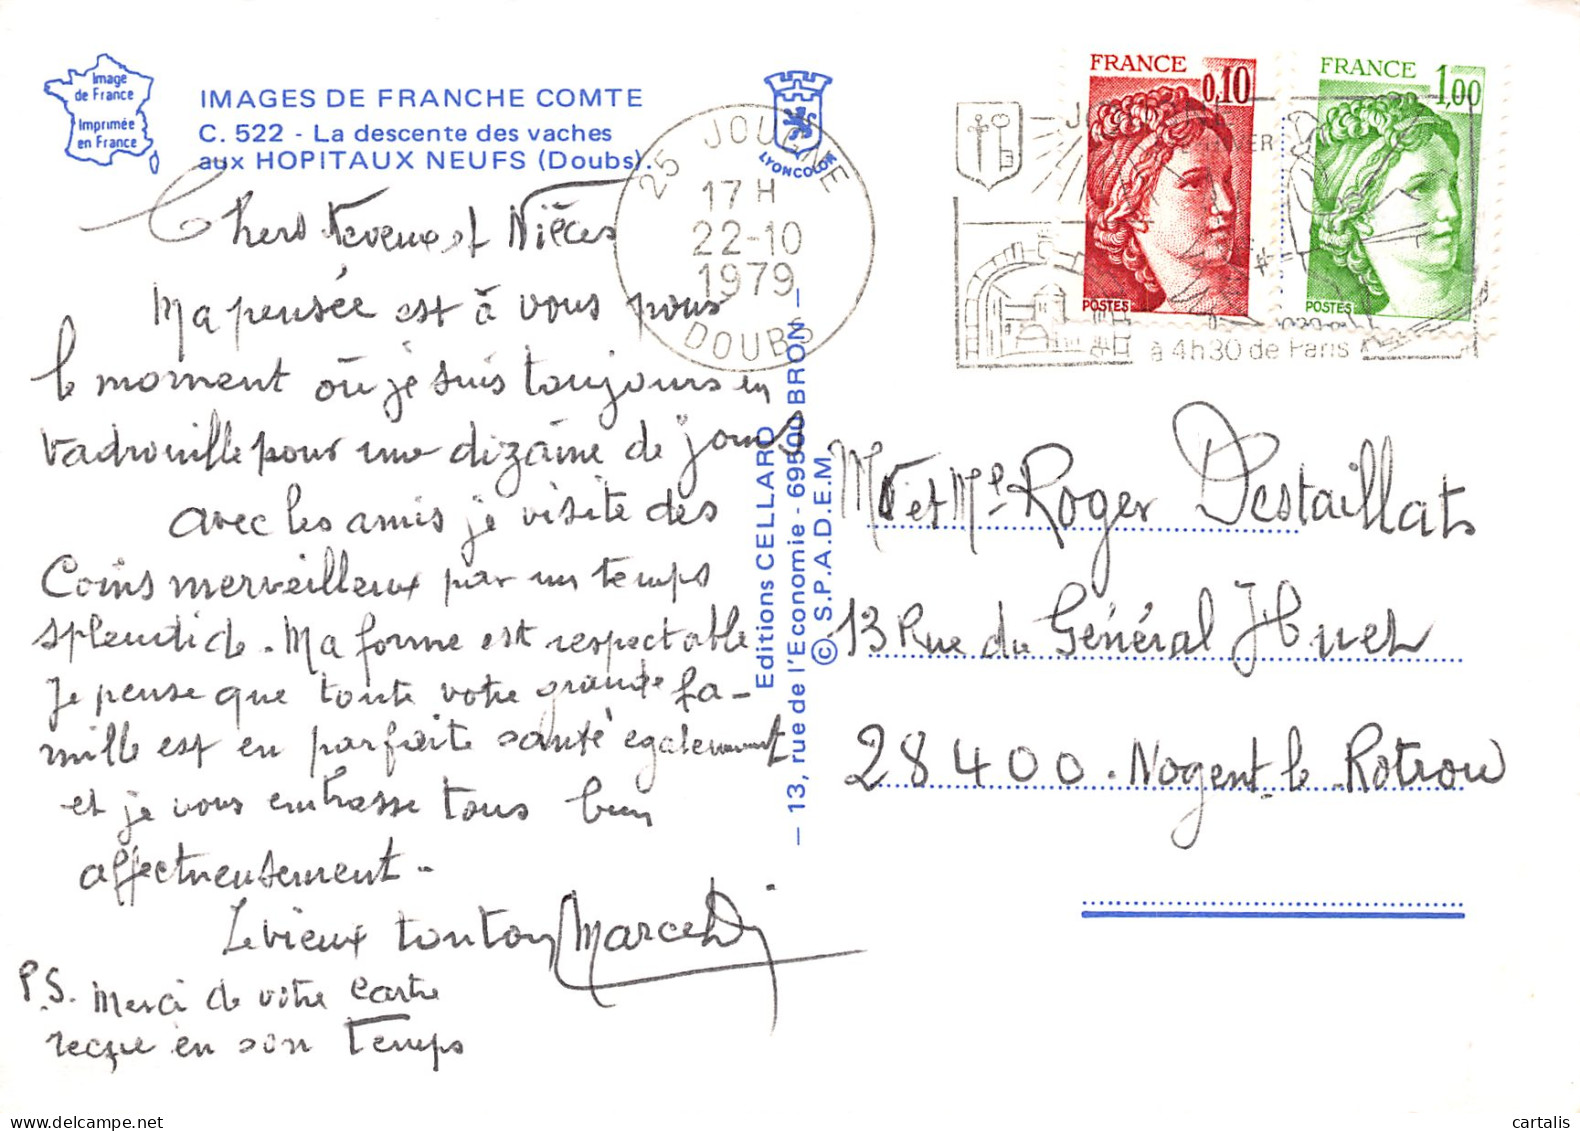 Image
de France
Imprimée
en France
IMAGES DE FRANCHE COMTE
C. 522 - La descente des vaches
aux HOPITAUX NEUFS (Doubs).
LYONCOLOR
25 JOUGNE
17 H
22-10
1979
DOUBS
FRANCE
0,10
POSTES
FRANCE
1,00
POSTES
à 4h30 de Paris
Chers Neveux et Nièces
Ma pensée est à vous pour
le moment où je suis toujours en
vadrouille pour une dizaine de jours
avec les amis je visite des
Coins merveilleux par un temps
splendide. Ma forme est respectable
Je pense que toute votre grande fa-
mille est en parfaite santé également
et je vous embrasse tous bien
affectueusement.
Le vieux tonton Marcel
P.S. Merci de votre carte
reçue en son Temps
Editions CELLARD
— 13, rue de l'Economie - 69500 BRON —
© S.P.A.D.E.M.
et Roger Destaillats
13 Rue du Général Huel
28400. Nogent le Rotrou
cartalis